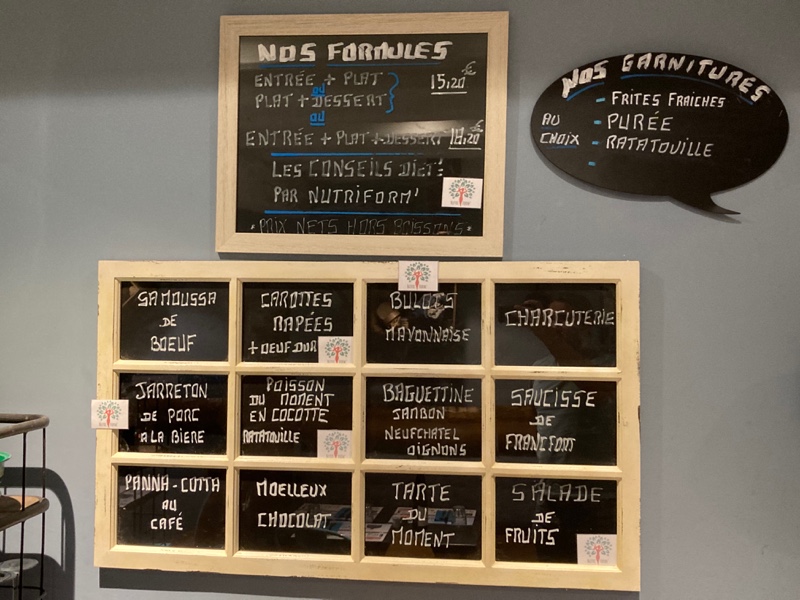 NOS FORMULES
ENTRÉE + PLAT
ou
PLAT + DESSERT
15,20 €
ou
ENTRÉE + PLAT + DESSERT 18,20 €
LES CONSEILS DIET'
PAR NUTRIFORM'
* PRIX NETS HORS BOISSONS *
NOS GARNITURES
AU CHOIX
- FRITES FRAICHES
- PURÉE
- RATATOUILLE
-
SAMOUSSA
DE
BOEUF
CAROTTES
RAPÉES
+ OEUF DUR
BULOTS
MAYONNAISE
CHARCUTERIE
JARRETON
DE PORC
A LA BIERE
POISSON
DU MOMENT
EN COCOTTE
RATATOUILLE
BAGUETTINE
JAMBON
NEUFCHATEL
OIGNONS
SAUCISSE
DE
FRANCFORT
PANNA-COTTA
AU
CAFÉ
MOELLEUX
CHOCOLAT
TARTE
DU
MOMENT
SALADE
DE
FRUITS